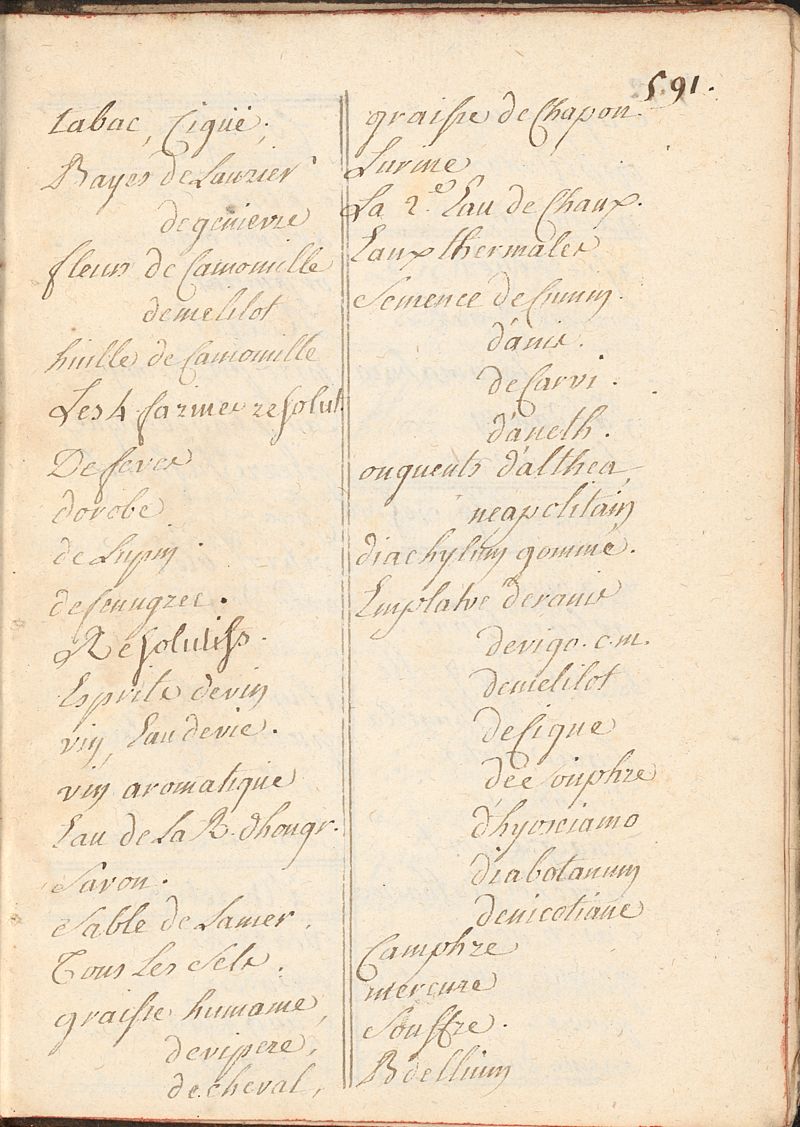 591.
tabac, Ciguë;
Bayes de Laurier
de genievre
fleurs de Camomille
de melilot
huille de Camomille
Les 4 farines resolut.
De feves
d'orobe
de Lupin.
de fenugrec.
Resolutifs.
Esprits de vin
vin, Eau de vie.
vin aromatique
Eau de La R. dhongr.
Savon.
Sable de La mer.
Tous Les Sels.
graisse humaine,
de vipere,
de cheval,
graisse de Chapon.
Lurine
La 2.e Eau de Chaux.
Eaux thermales
Semence de Cumin.
d'anis.
de Carvi.
d'aneth.
onguents d'althea,
neapolitain
diachylum gommé.
Emplatre de ranis
de vigo. c. m.
de melilot
de Cigue
dee Souphre
d'hyosciamo
diabotanum
de nicotiane
Camphre
mercure
Souffre.
Bdellium